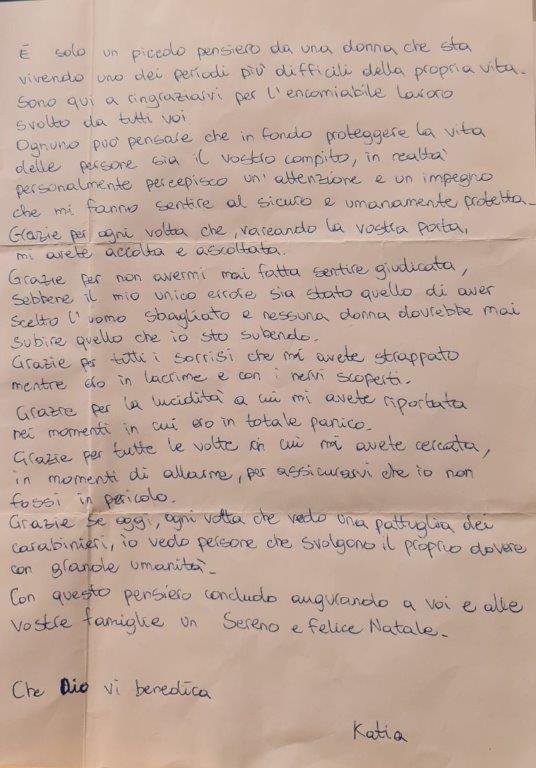 È solo un piccolo pensiero da una donna che sta
vivendo uno dei periodi più difficili della propria vita.
Sono qui a ringraziarvi per l'encomiabile lavoro
svolto da tutti voi
Ognuno può pensare che in fondo proteggere la vita
delle persone sia il vostro compito, in realtà
personalmente percepisco un'attenzione e un impegno
che mi fanno sentire al sicuro e umanamente protetta.
Grazie per ogni volta che, varcando la vostra porta,
mi avete accolta e ascoltata.
Grazie per non avermi mai fatta sentire giudicata,
sebbene il mio unico errore sia stato quello di aver
scelto l'uomo sbagliato e nessuna donna dovrebbe mai
subire quello che io sto subendo.
Grazie per tutti i sorrisi che mi avete strappato
mentre ero in lacrime e con i nervi scoperti.
Grazie per la lucidità a cui mi avete riportata
nei momenti in cui ero in totale panico.
Grazie per tutte le volte in cui mi avete cercata,
in momenti di allarme, per assicurarvi che io non
fossi in pericolo.
Grazie se oggi, ogni volta che vedo una pattuglia dei
carabinieri, io vedo persone che svolgono il proprio dovere
con grande umanità.
Con questo pensiero concludo augurando a voi e alle
vostre famiglie un Sereno e Felice Natale.
Che Dio vi benedica
Katia